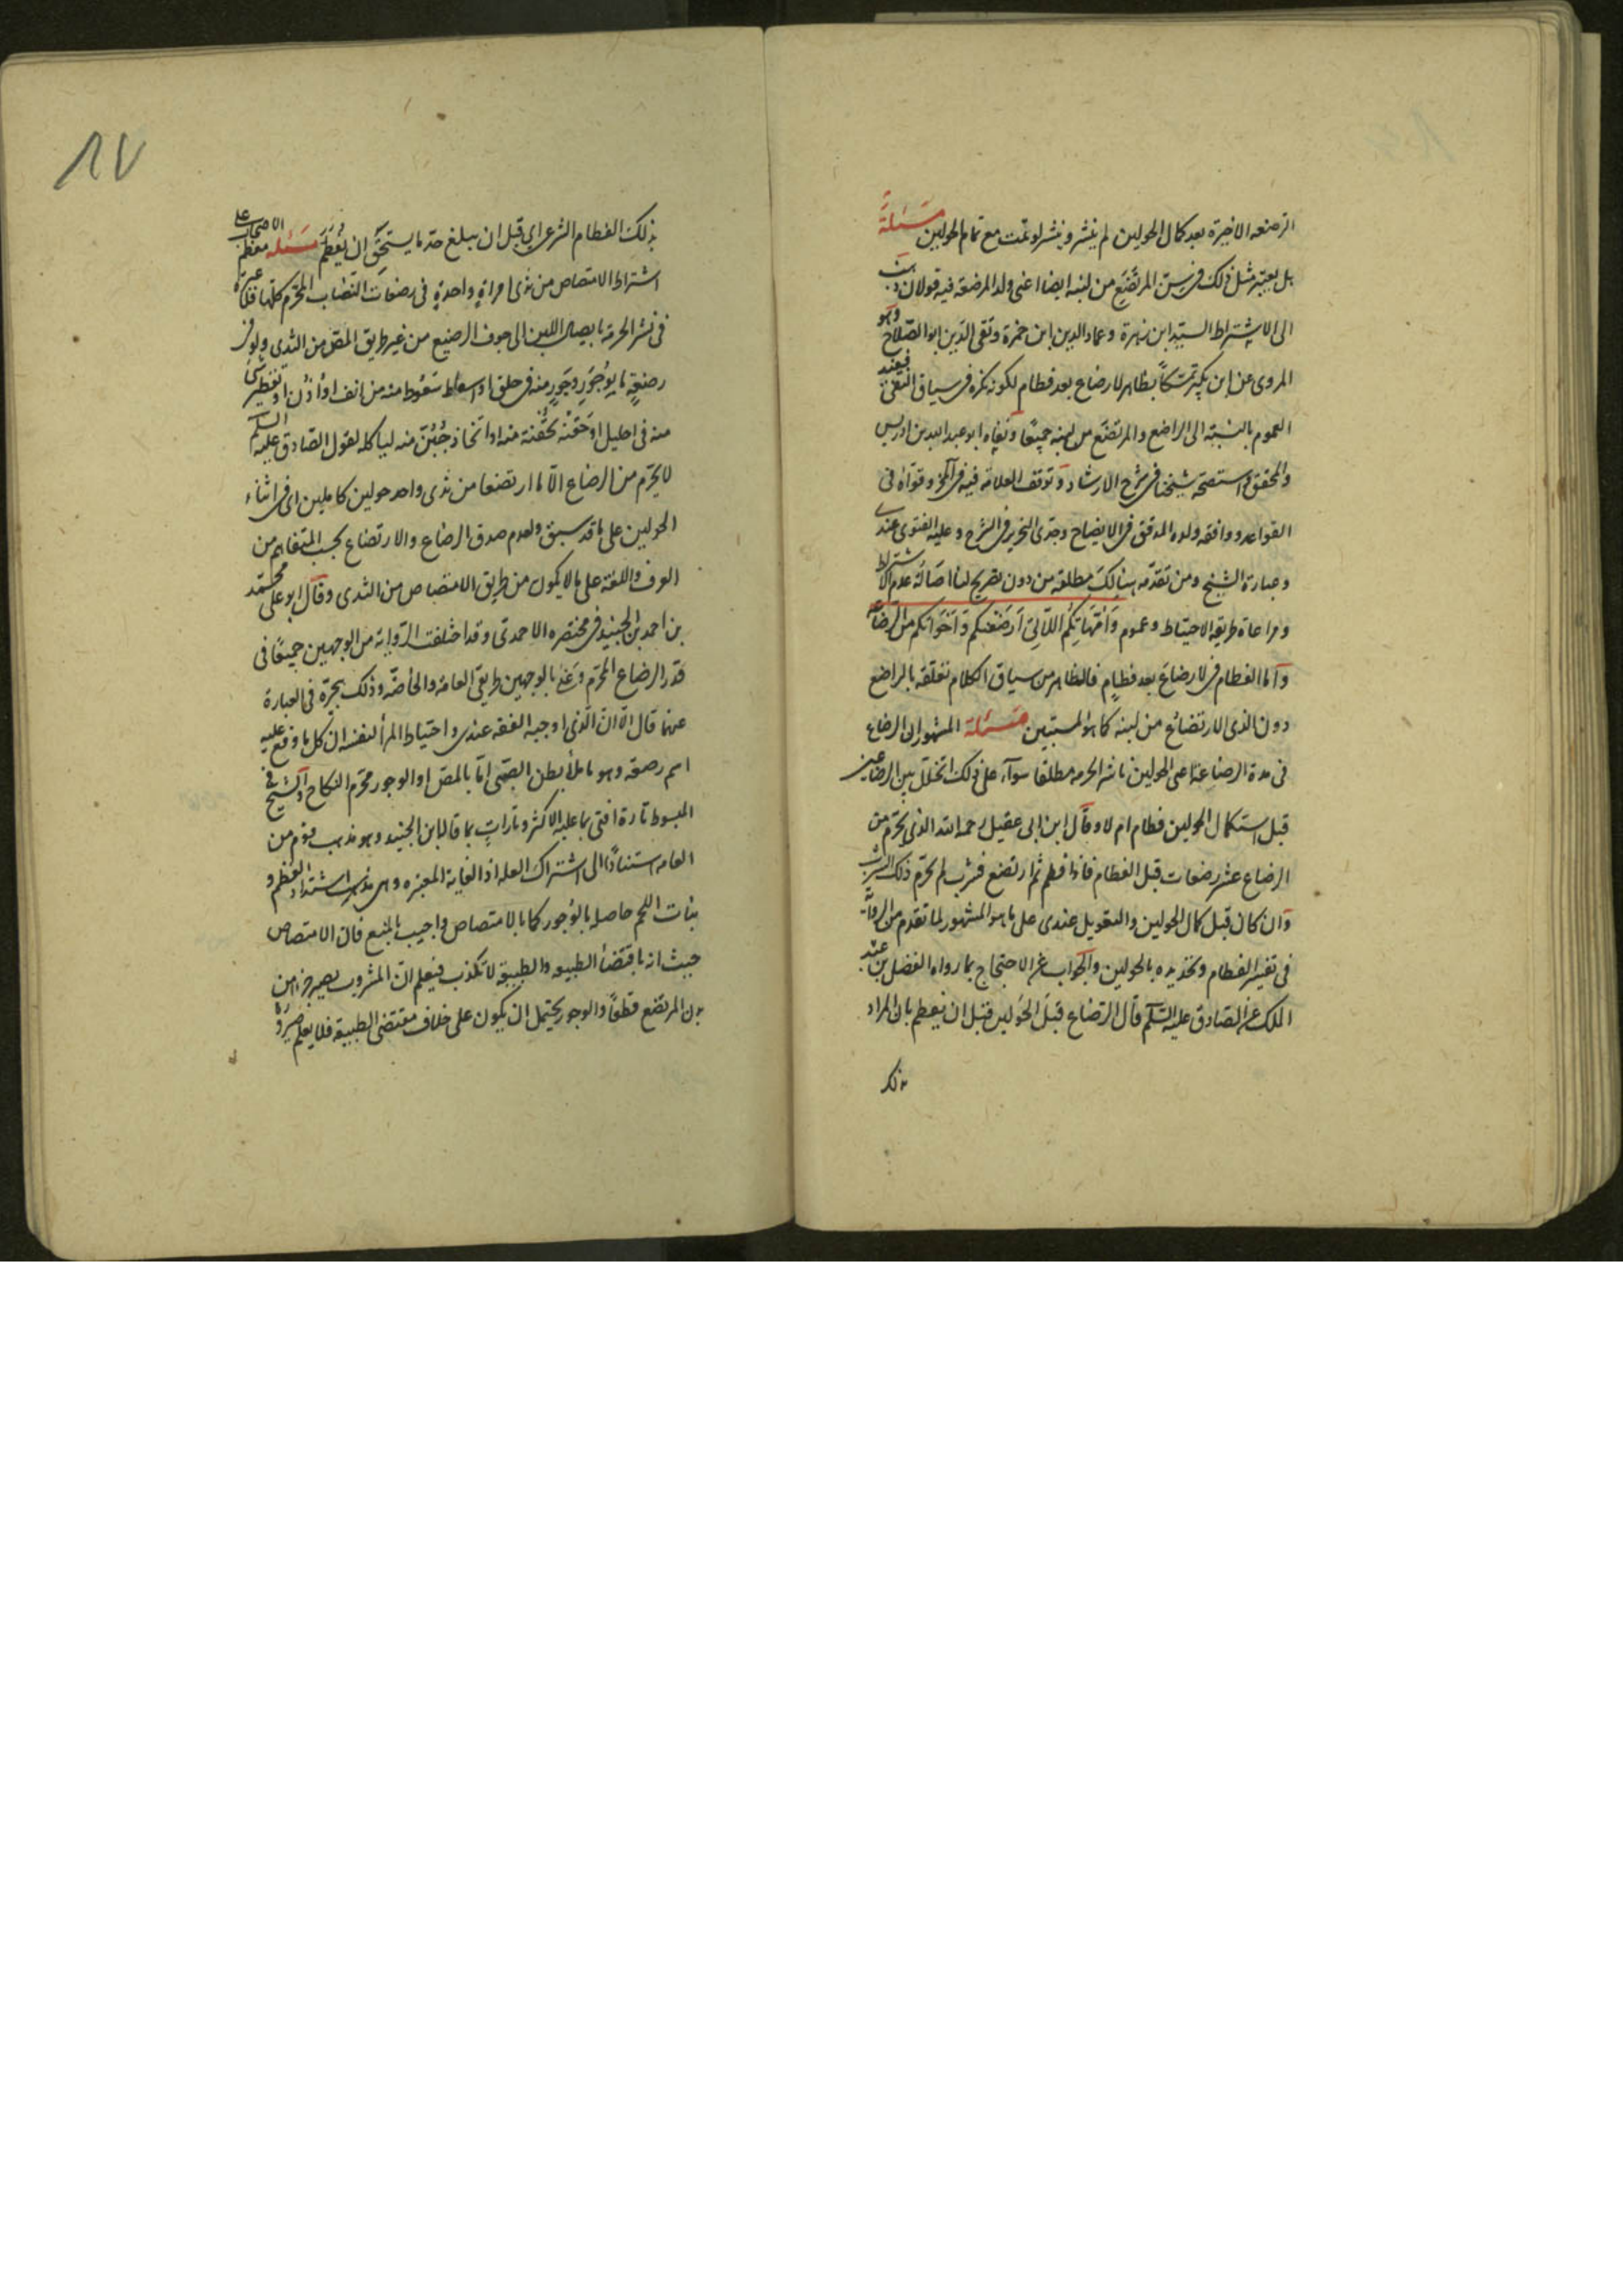 الرضعه الاخيرة بعد كمال الحولين لم ينشر وينشر لو تمت مع تمام الحولين مسئلة
بل يعتبر مثل ذلك في سن المرتضع من لبنه ايضا اعنى ولد المرضعة فيه قولان ذهب
الى الاشتراط السيد ابن زهرة وعماد الدين ابن حمزة وتقى الدين ابو الصلاح وهو
المروى عن ابن بكير تمسكا بظاهر لا رضاع بعد فطام لكونه نكرة في سياق النفى فيفيد
العموم بالنسبة الى الراضع والمرتضع من لبنه جميعا ونفاه ابو عبد الله بن ادريس
والمحقق واستصحه شيخنا في شرح الارشاد وتوقف العلامة فيه في وقواه في
القواعد ووافقه ولده المدقق في الايضاح وجدى النحرير في الشرح وعليه الفتوى عندى
وعبارة الشيخ ومن تقدمه هنالك مطلقة من دون تصريح لنا اصالة عدم الاشتراط
ومراعاة طريقة الاحتياط وعموم وَاُمّهَاتكُم اللاّتى اَرضَعنَكم وَاَخَوَاتكم من الرضاعه
واما الفطام في لا رضاع بعد فطام فالظاهر من سياق الكلام تعلقه بالراضع
دون الذى الارتضاع من لبنه كما هو المستبين مسئلة المشهور ان الرضاع
في مدة الرضاعة اعنى الحولين ناشر الحرمة مطلقا سوآء على ذلك اتخلل بين الرضاعين
قبل استكمال الحولين فطام ام لا وقال ابن ابى عقيل رحمه الله الذى يحرم من
الرضاع عشر رضعات قبل الفطام فاذا فطم ثم ارتضع فشرب لم يحرم ذلك الشرب
وان كان قبل كمال الحولين والتعويل عندى على ما هو المشهور لما تقدم من الرواية
في تفسير الفطام وتحديده بالحولين والجواب عن الاحتجاج بما رواه الفضل بن عبد
الملك عن الصادق عليه السلام قال الرضاع قبل الحولين قبل ان يفطم بان المراد
بذلك
١٧
بذلك الفطام الشرعى اي قبل ان يبلغ حد ما يستحق ان يُفطَم مسئله معظم الاصحاب على
اشتراط الامتصاص من ثدى امراة واحدة في رضعات النصاب المحرم كلها فلا عبرة
في نشر الحرمة بايصال اللبن الى جوف الرضيع من غير طريق المص من الثدى ولو في
رضعة ما بوُجور وَجَور منه في حلق او اسعاط سعوط منه من انف او اذن او تقطير شئ
منه في احليل او حقنه بحقنة منه او اتخاذ جبن منه لياكله لقول الصادق عليه السلام
لا يحرم من الرضاع الا ما ارتضعا من ثدى واحد حولين كاملين اى في اثناء
الحولين على ما قد سبق ولعدم صدق الرضاع والارتضاع بحسب المتفاهم من
العرف واللغة على ما لا يكون من طريق الامتصاص من الثدى وقال ابو على محمد
بن احمد بن الجنيد في مختصره الاحمدى وقد اختلفت الرواية من الوجهين جميعا في
قدر الرضاع المحرم وعنى بالوجهين طريقى العامة والخاصة وذلك في العبارة
عنهما قال الا ان الذى اوجبه الفقه عندى واحتياط المرأ لنفسه ان كل ما وقع عليه
اسم رضعة وهو ما ملأ بطن الصبى اما بالمص او الوجور محرم النكاح والشيخ في
المبسوط تارة افتى بما عليه الاكثر وتارات بما قاله ابن الجنيد وهو مذهب قوم من
العامه استنادا الى اشتراك العله اذ الغاية المعتبره وهى اشتداد العظم و
نبات اللحم حاصله بالوجور كما بالامتصاص واجيب بالمنع فان الامتصاص
حيث انه ما اقتضا الطبيعه والطبيعة لا تكذب فيعلم ان المشروب يصير جزء من
بدن المرتضع قطعا والوجور يحتمل ان يكون على خلاف مقتضى الطبيعة فلا يعلم